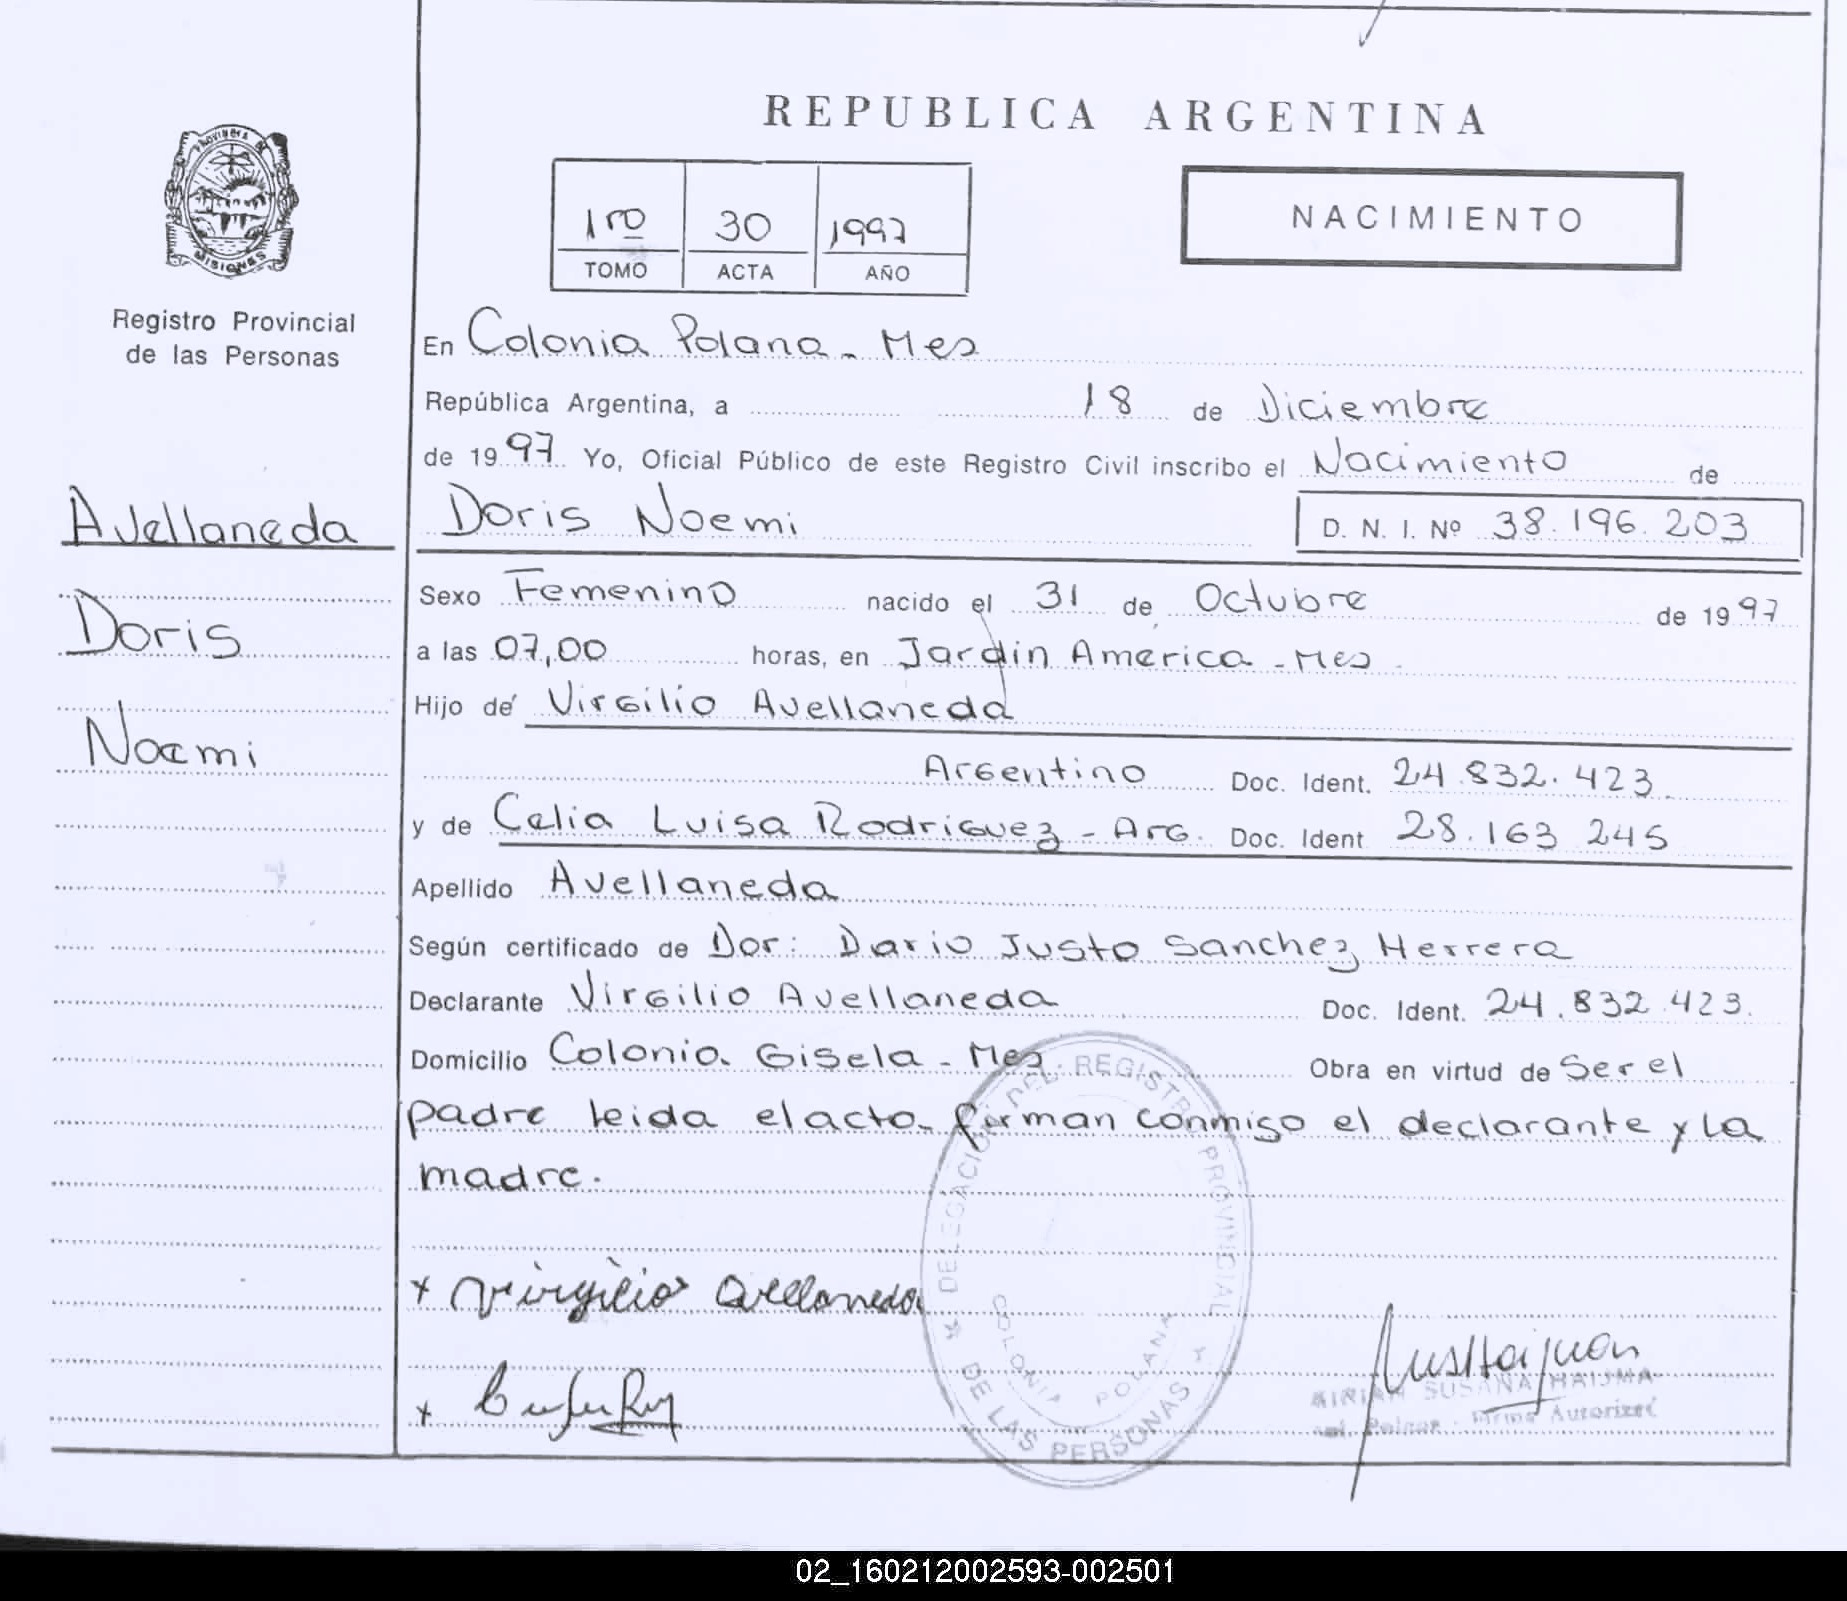 REPUBLICA ARGENTINA
PROVINCIA DE
MISIONES
Registro Provincial
de las Personas
1ro 30 1997
TOMO ACTA AÑO
NACIMIENTO
En Colonia Polana - Mes
República Argentina, a 18 de Diciembre
de 1997 Yo, Oficial Público de este Registro Civil inscribo el Nacimiento de
Avellaneda
Doris
Noemi
Doris Noemi D. N. I. Nº 38.196.203
Sexo Femenino nacido el 31 de Octubre de 1997
a las 07,00 horas, en Jardin America - Mes.
Hijo de Virgilio Avellaneda
Argentino Doc. Ident. 24.832.423.
y de Celia Luisa Rodriguez - Arg. Doc. Ident 28.163 245
Apellido Avellaneda
Según certificado de Dor: Dario Justo Sanchez Herrera
Declarante Virgilio Avellaneda Doc. Ident. 24.832.423.
Domicilio Colonia Gisela - Mes Obra en virtud de Ser el
padre leida el acto firman conmigo el declarante y la
madre.
DELEGACION DEL REGISTRO PROVINCIAL
DE LAS PERSONAS
COLONIA POLANA
x Virgilio Avellaneda
x
MIRIAN SUSANA HAIJMA
Firma Autorizad
02_160212002593-002501